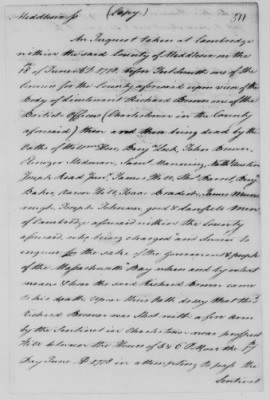 (Copy)
Middlesex ss
511
An Inquest taken at Cambridge
within the said County of Middlesex on the
of June A D 1778. before one of the
Coroners for the County aforesaid upon view of the
Body of Lieutenant Richard Brown one of the
British Officers (Charlestown in the County
aforesaid) then and there being dead by the
Oaths of
Baker, Aaron Hill, Isaac Bradish, James
Joseph Johnson, good & Lawfull Men
of Cambridge aforesaid within the County
aforesaid, who being charged and sworn to
inquire for the State of the Government & people
of the Massachusetts Bay when and by what
means & how the said Richard Brown came
to his death Upon their Oath do say that the sd
Richard Brown was Shot with a fire arm
by the Sentinel in Charlestown near prospect
Hill between the Hours of 5 & 6 P the
Day June A D 1778 in attempting to pass the
Sentinel